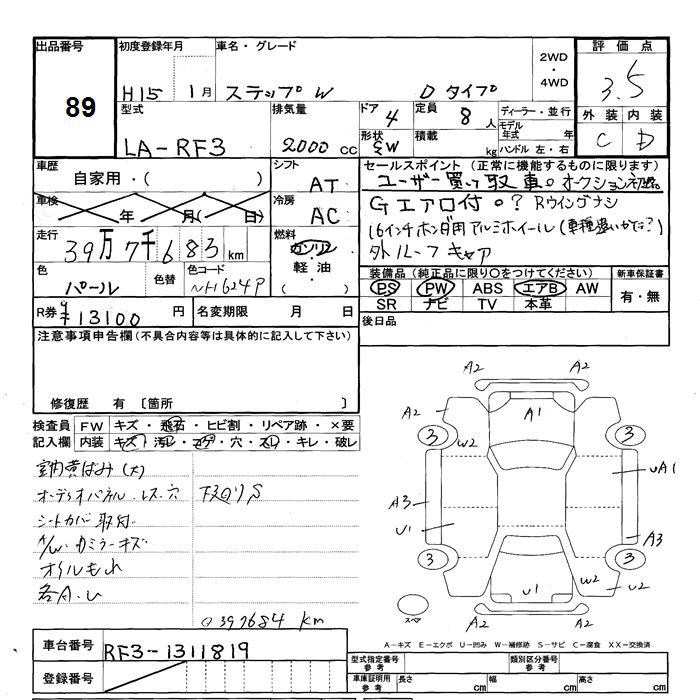 出品番号 初度登録年月 車名・グレード 2WD ・ 4WD 評価点
89 H15 1月 ステップW Dタイプ 3.5
型式 排気量 ドア 定員 ディーラー・並行 外装 内装
LA-RF3 2000cc 4 8人 モデル年式 年 C D
形状 SW 積載 kg ハンドル 左・右
車歴 シフト セールスポイント(正常に機能するものに限ります)
自家用・( ) AT ユーザー買い取り車。オークション初出品
車検 年 月( 日) 冷房 AC Gエアロ付。? Rウイングナシ
走行 39万7千683km 燃料 ガソリン・軽油・ 16インチホンダ用アルミホイール(車種違いかな?)
外ルーフキャリア
色 色替 色コード 装備品(純正品に限り○をつけてください) 新車保証書
パール NH624P PS PW ABS エアB AW 有・無
SR ナビ TV 本革
R券 ¥13100円 名変期限 月 日 後日品
注意事項申告欄(不具合内容等は具体的に記入して下さい)
修復歴 有 〔箇所 〕
検査員 FW キズ・飛石・ヒビ割・リペア跡・×要
記入欄 内装 キズ・汚レ・コゲ・穴・スレ・キレ・破レ
室内黄ばみ(大)
オーディオパネル・レス・穴 下廻りS
シートカバー取付
A/W・カミラーキズ
オイルもれ
各A・U
397684 km
A2 A2
A2 A1 A2
3 W2 3
UA1
A3 U1 A3
3 3
U1 W2 U2
A2 A2
スペア
A-キズ E-エクボ U-凹み W-補修跡 S-サビ C-腐食 XX-交換済
車台番号 RF3-1311819
型式指定番号 参考 類別区分番号 参考
登録番号 車庫証明用 参考 長さ cm 幅 cm 高さ cm